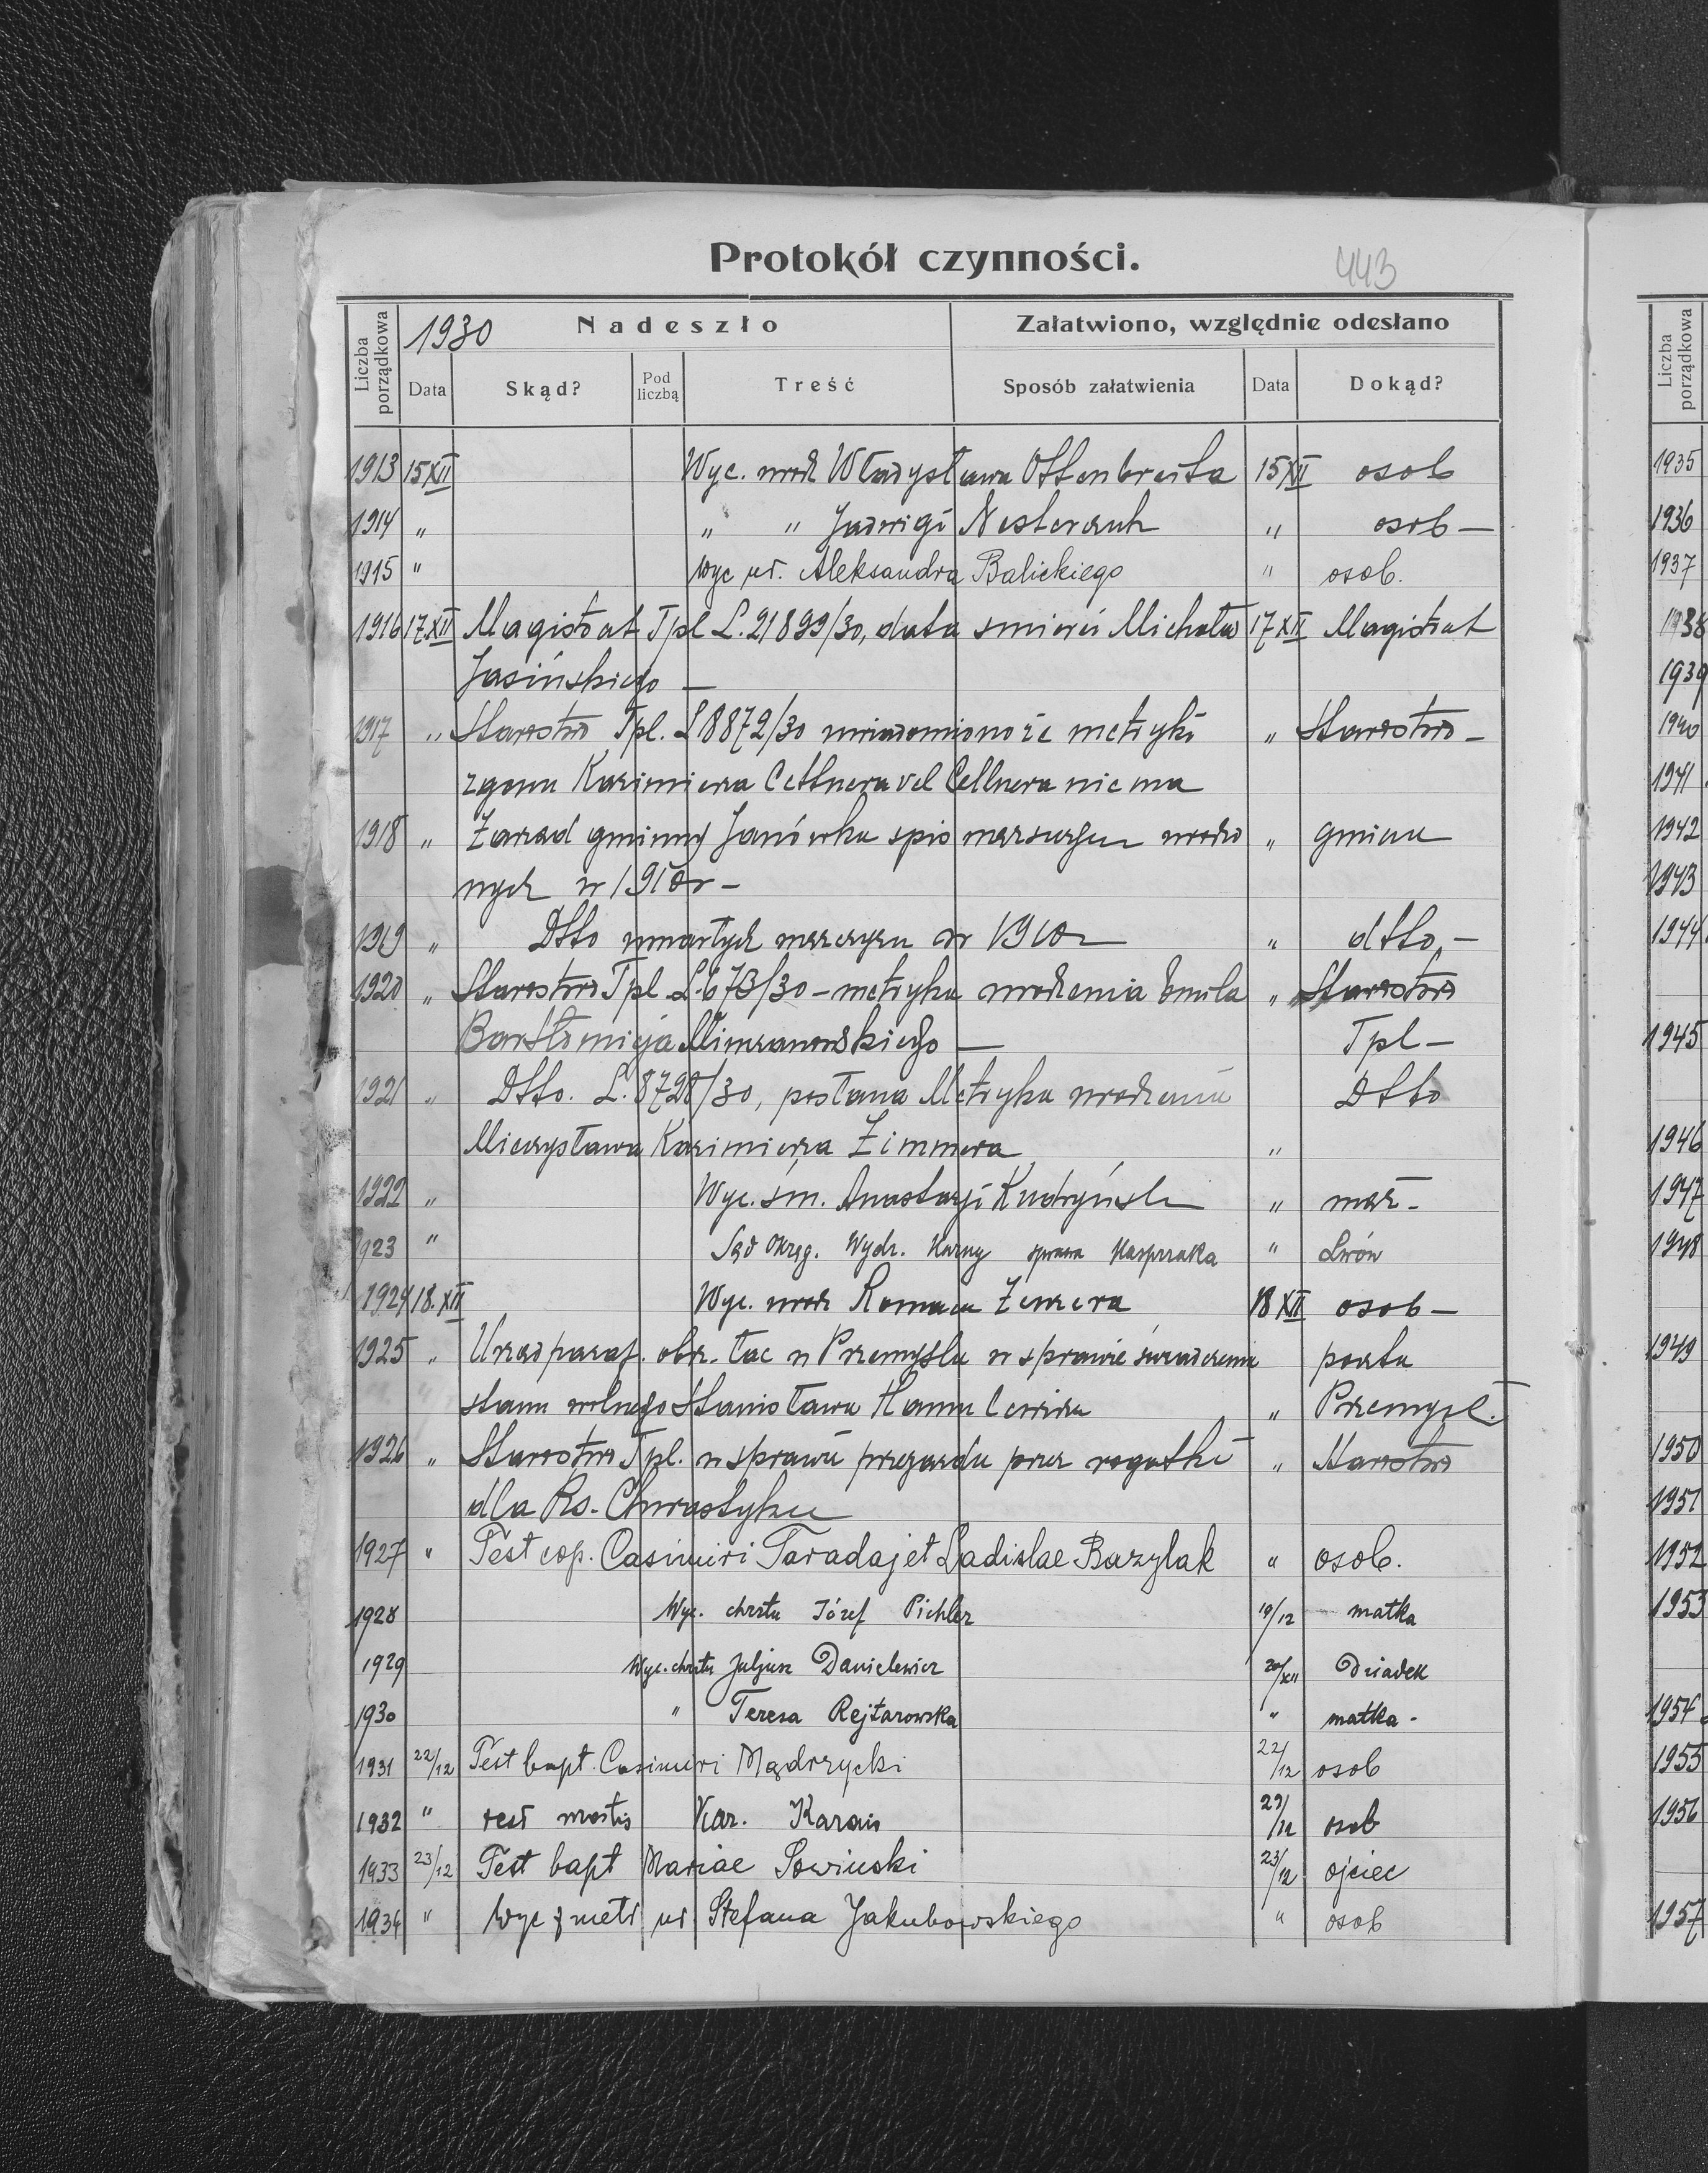 Protokół czynności.
443
Liczba porządkowa
1930
Nadeszło
Załatwiono, względnie odesłano
Data
Skąd?
Pod liczbą
Treść
Sposób załatwienia
Data
Dokąd?
1913 15 XII Wyc. urodz Władysława Ottenbreita 15 XII osob
1914 " " " Jadwigi Nesteruk " osob —
1915 " Wyc ur. Aleksandra Balickiego " osob.
1916 17.XII Magistrat Tpl L. 21899/30, data śmierci Michała 17 XII Magistrat
Jasińskiego —
1917 " Starostwo Tpl. L 8872/30 uwiadomiono że metryki " Starostwo —
zgonu Kazimierza Cettnera vel Cellnera nie ma
1918 " Zarząd gminny Janówka spis mężczyzn urodzo " gmina
nych w 1910 r —
1919 " Dtto umarłych mężczyzn w 1910 r " dtto, —
1920 " Starostwo Tpl L. 673/30 — metryka urodzenia Emila " Starostwo
Bartłomieja Tpl —
1921 " Dtto. L. 8728/30, posłana Metryka urodzenia Dtto
Mieczysława Kazimierza Zimmera "
1922 " Wyc. śm. Anastazji " mąż —
1923 " Sąd Okręg. Wydz. Karny sprawa Kasprzaka " Lwów
1924 18. XII Wyc. urodz Romana 18 XII osob —
1925 " Urząd paraf. obrz. łac w Przemyślu w sprawie świadczenia poczta
stanu wolnego Stanisława " Przemyśl.
1926 " Starostwo Tpl. w sprawie przejazdu przez rogatki " Starostwo
dla Ks. Chwastyka
1927 " Test cop. Casimiri Taradaj et Ladislae Bazylak " osob.
1928 Wyc. chrztu Józef Pichler 19/12 matka
1929 Wyc. chrztu Juljusz Danielewicz 20/XII Dziadek
1930 " Teresa Rejtarowska " matka -
1931 22/12 Test bapt. Casimiri Mądrzycki 22/12 osob
1932 " test mortis Kar. Karais osob
1933 23/12 Test bapt Mariae Sowinski 23/12 ojciec
1934 " Wyc z metr ur Stefana Jakubowskiego " osob
Liczba porządkowa
1935
1936
1937
1938
1939
1940
1941
1942
1943
1944
1945
1946
1947
1948
1949
1950
1951
1952
1953
1954
1955
1956
1957